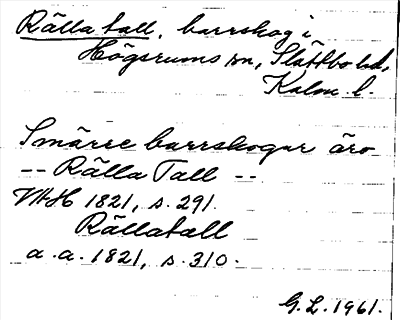 Rälla tall, barrskog i
Högsrums sn, Slättbo hd,
Kalm. l.
Smärre barrskogar äro
-- Rälla Tall --
VAH 1821, s. 291.
Rällatall
a. a. 1821, s. 310.
G. L. 1961.